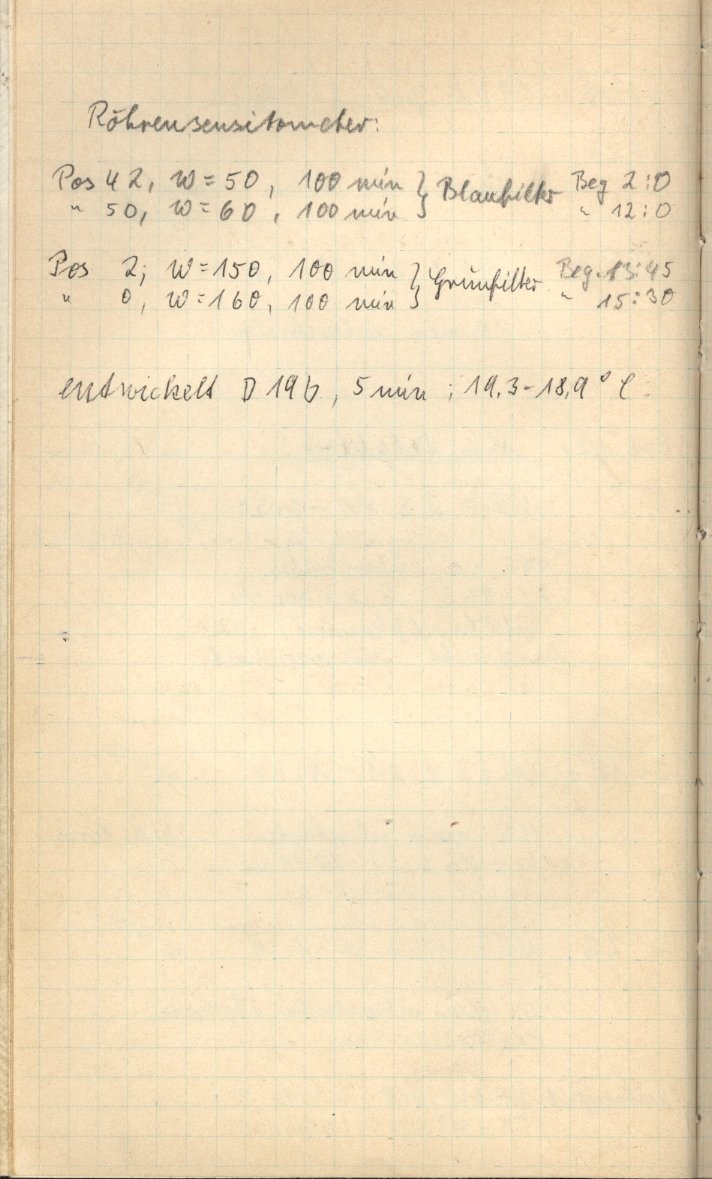 Röhrensensitometer:
Pos 42, W=50, 100 min } Blaufilter Beg 2:0
" 50, W=60, 100 min } " 12:0
Pos 2; W=150, 100 min } Grünfilter Beg. 13:45
" 0, W=160, 100 min } " 15:30
entwickelt D 19b, 5 min ; 19,3-18,9° C.